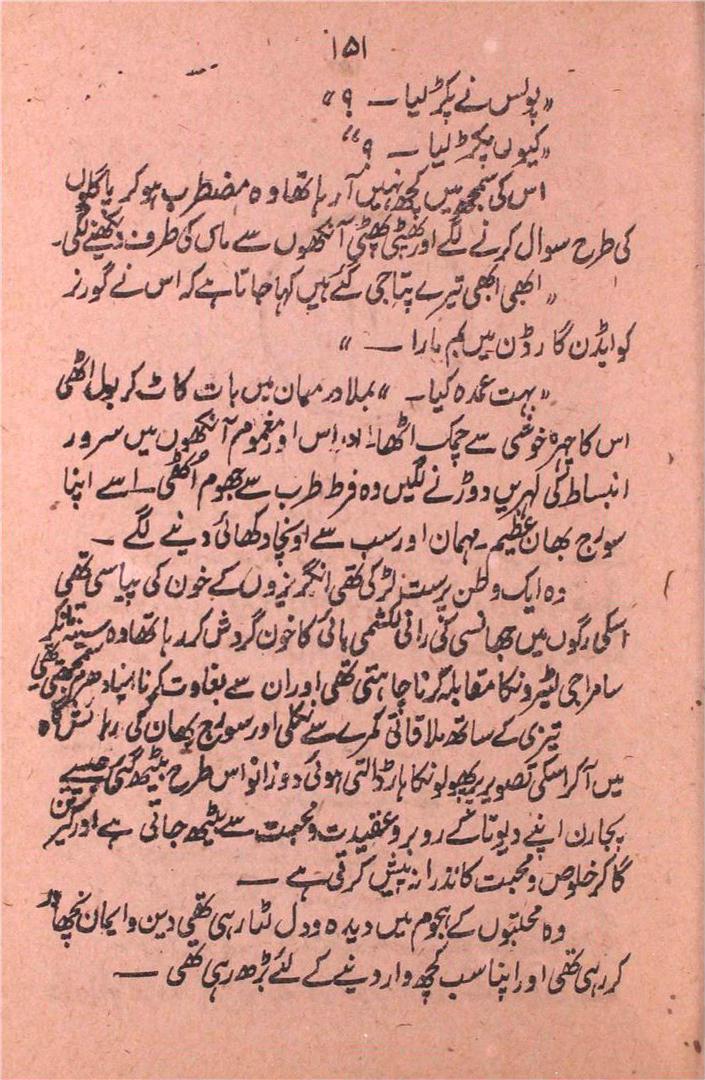 ۱۵۱
"پولس نے پکڑ لیا — ؟"
"کیوں پکڑ لیا — ؟"
اس کی سمجھ میں کچھ نہیں آ رہا تھا وہ مضطرب ہو کر پاگلوں
کی طرح سوال کرنے لگے اور پھٹی پھٹی آنکھوں سے ماں کی طرف دیکھنے لگی۔
"ابھی ابھی تیرے پتاجی گئے ہیں کہا جاتا ہے کہ اس نے گورنر
کو ایڈن گارڈن میں بم مارا — "
"بہت عمدہ کیا۔ " بملا درمیان میں بات کاٹ کر بول اٹھی
اس کا چہرہ خوشی سے چمک اٹھا۔ اداس اور مغموم آنکھوں میں سرور
انبساط کی لہریں دوڑنے لگیں وہ فرط طرب سے جھوم اُٹھی — اسے اپنا
سورج بھان عظیم۔ مہمان اور سب سے اونچا دکھائی دینے لگے —
وہ ایک وطن پرست لڑکی تھی انگریزوں کے خون کی پیاسی تھی
اسکی رگوں میں جھانسی کی رانی لکشمی بائی کا خون گردش کر رہا تھا وہ سینہ تانکر
سامراجی لٹیرونکا مقابلہ کرنا چاہتی تھی اور ان سے بغاوت کرنا اپنا دھرم سمجھتی تھی
تیزی کے ساتھ ملاقاتی کمرے سے نکلی اور سورج بھان کی رہائش گاہ
میں آ کر اسکی تصویر پر پھولونکا ہار ڈالتی ہوئی دوزانو اس طرح بیٹھ گئی جیسے
پجارن اپنے دیوتا کے روبرو عقیدت و محبت سے بیٹھ جاتی ہے اور کیرتن
گا کر خلوص و محبت کا نذرانہ پیش کرتی ہے —
وہ محبتوں کے ہجوم میں دیدہ و دل لٹا رہی تھی دین و ایمان نچھاور
کر رہی تھی اور اپنا سب کچھ وار دینے کے لئے بڑھ رہی تھی —